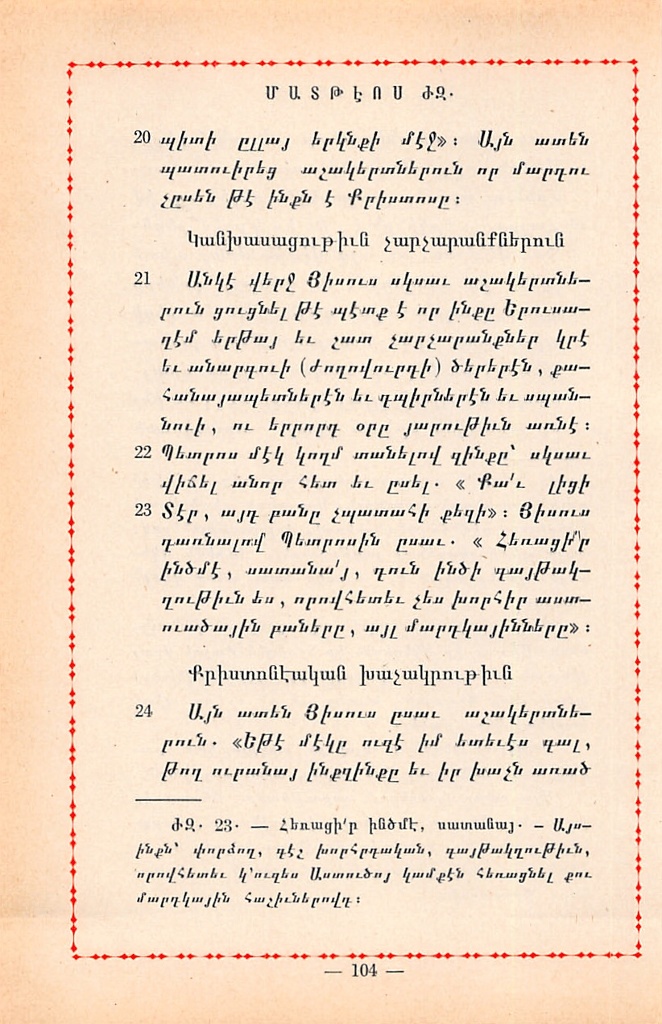 ՄԱՏԹԷՈՍ ԺԶ.
20 պիտի ըլլայ երկնքի մէջ»։ Այն ատեն
պատուիրեց աշակերտներուն որ մարդու
չըսեն թէ ինքն է Քրիստոսը։
Կանխասացութիւն չարչարանքներուն
21 Անկէ վերջ Յիսուս սկսաւ աշակերտնե—
րուն ցուցնել թէ պէտք է որ ինքը Երուսա—
ղէմ երթայ եւ շատ չարչարանքներ կրէ
եւ անարգուի (ժողովուրդի) ծերերէն, քա—
հանայապետներէն եւ դպիրներէն եւ սպան—
նուի, ու երրորդ օրը յարութիւն առնէ։
22 Պետրոս մէկ կողմ տանելով զինքը՝ սկսաւ
վիճել անոր հետ եւ ըսել. « Քա՛ւ լիցի
23 Տէր, այդ բանը չպատահի քեզի»։ Յիսուս
դառնալով Պետրոսին ըսաւ. « Հեռացի՛ր
ինծմէ, սատանա՛յ, դուն ինծի գայթակ—
ղութիւն ես, որովհետեւ չես խորհիր աստ—
ուածային բաները, այլ մարդկայինները»։
Քրիստոնէական խաչակրութիւն
24 Այն ատեն Յիսուս ըսաւ աշակերտնե—
րուն. «Եթէ մէկը ուզէ իմ ետեւէս գալ,
թող ուրանայ ինքզինքը եւ իր խաչն առած
ԺԶ. 23. — Հեռացի՛ր ինծմէ, սատանայ. – Այս—
ինքն՝ փորձող, գէշ խորհրդական, գայթակղութիւն,
որովհետեւ կ՚ուզես Աստուծոյ կամքէն հեռացնել քու
մարդկային հաշիւներովդ։
— 104 —